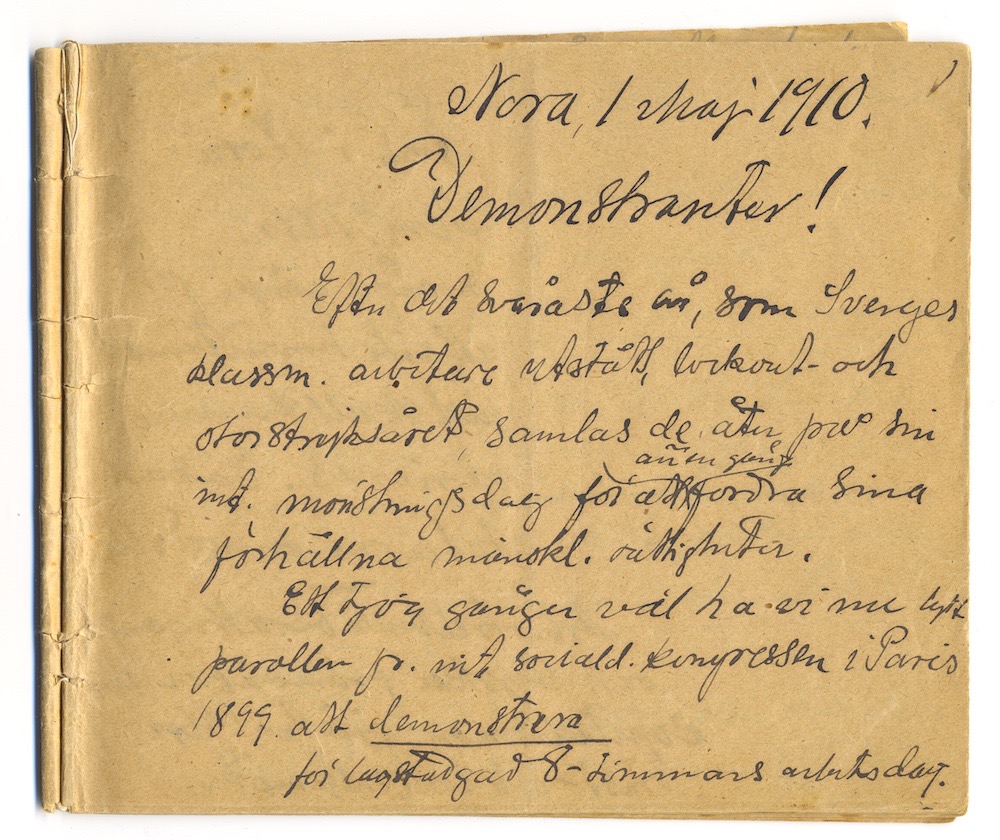 Nora, 1 Maj 1910.
Demonstranter!
Efter det svåraste år, som Sveriges
klassm. arbetare utstått, lockout- och
storstrejksåret, samlas de åter på sin
ännu en gång
int. mönstringsdag för att fordra sina
förhållna mänskl. rättigheter.
Ett tjog gånger väl ha vi nu lytt
parollen fr. int. sociald. kongressen i Paris
1899. att demonstrera
för lagstadgad 8-timmars arbetsdag.